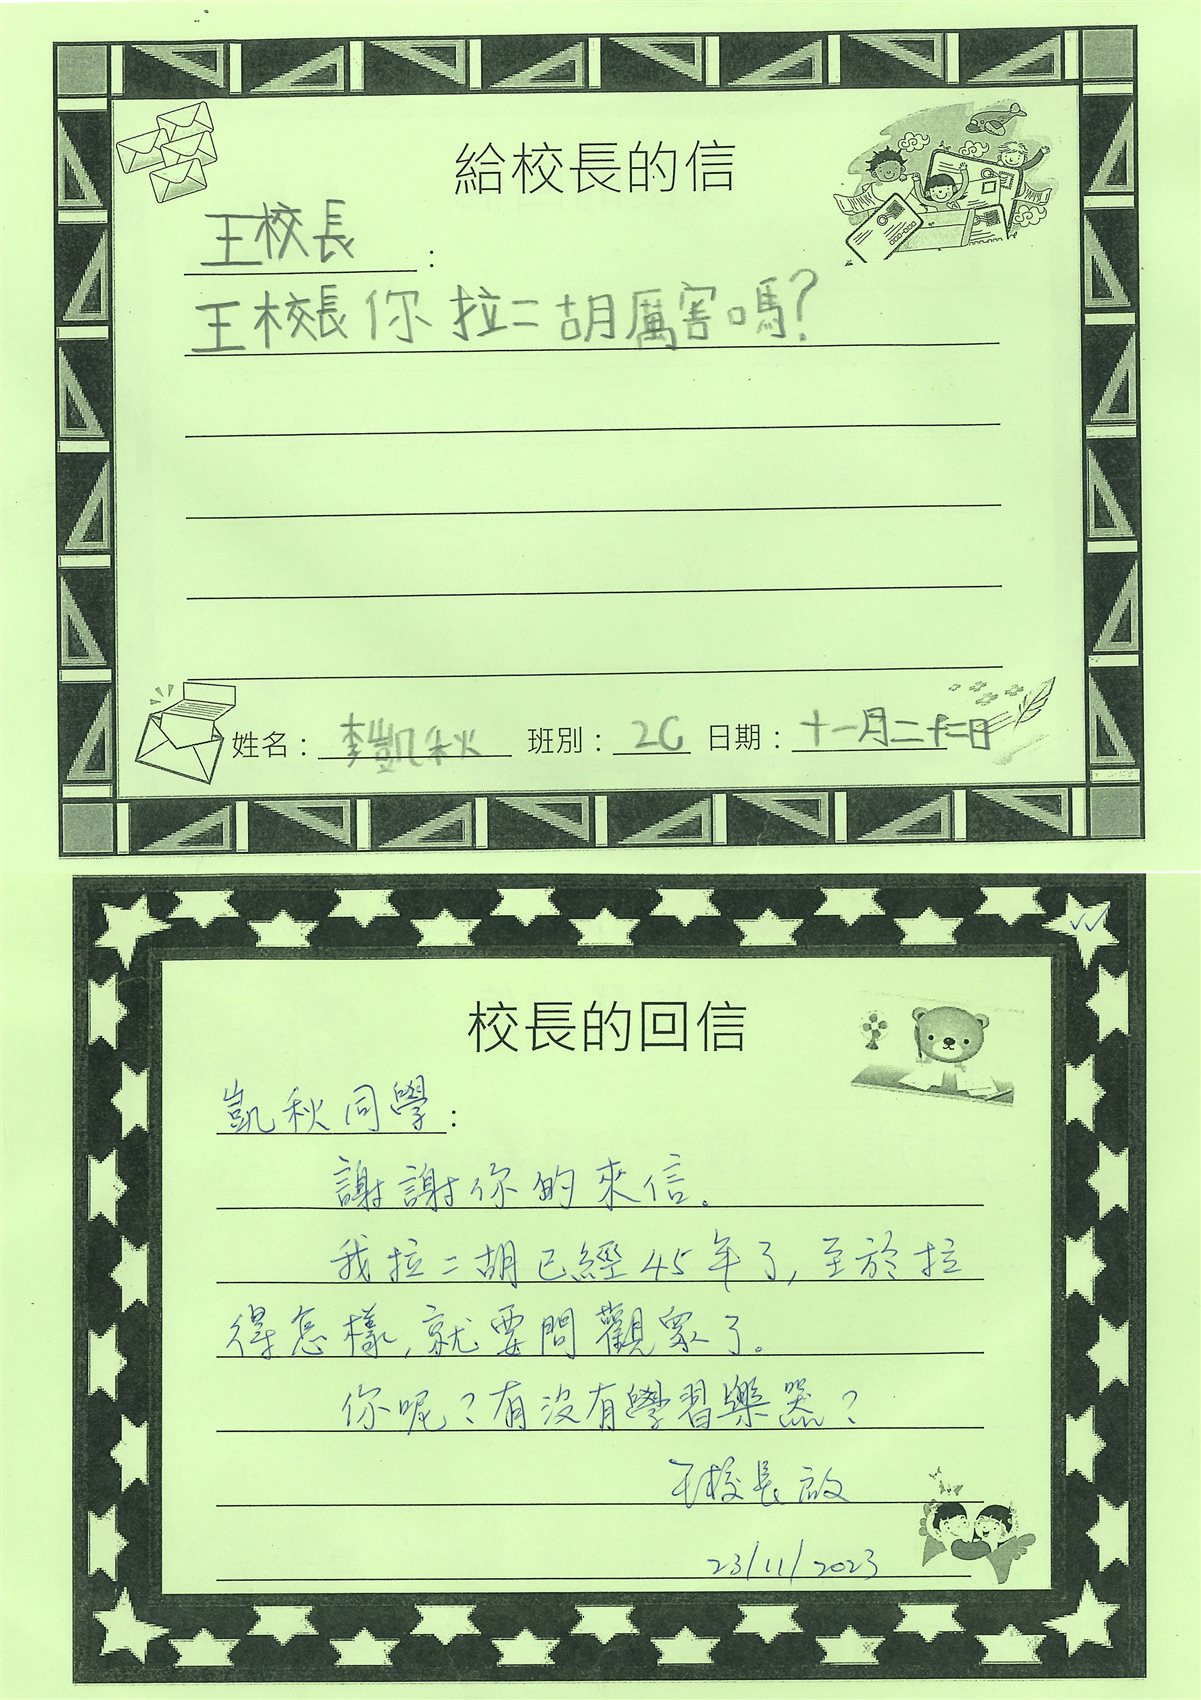 給校長的信
王校長：
王校長你拉二胡厲害嗎？
姓名：李凱秋 班別：2C 日期：十一月二十二日
校長的回信
凱秋同學：
謝謝你的來信。
我拉二胡已經45年了，至於拉
得怎樣，就要問觀眾了。
你呢？有沒有學習樂器？
王校長啟
23/11/2023